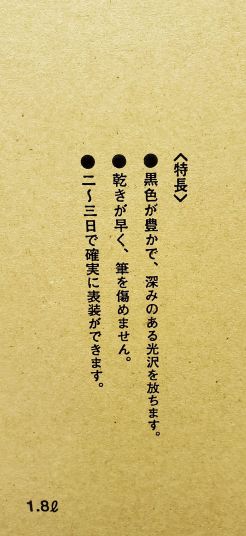 〈特長〉
●黒色が豊かで、深みのある光沢を放ちます。
●乾きが早く、筆を傷めません。
●二〜三日で確実に表装ができます。
1.8ℓ